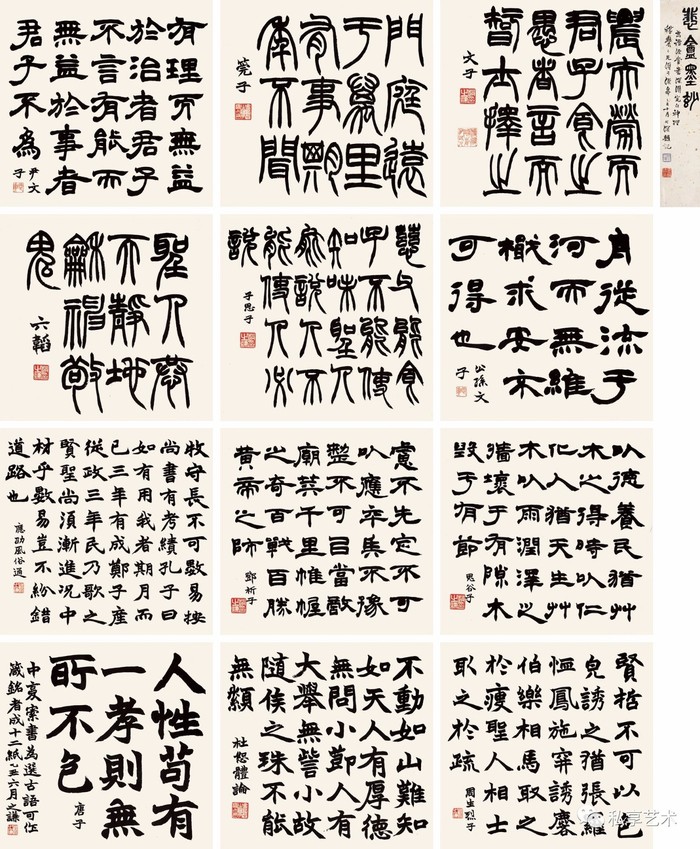 悲盦墨妙
農夫勞而
君子食之
愚者言而
智士擇之
文子
門庭遠
于萬里
有事朞
年不聞
筦子
有理而無益
於治者君子
不言有能而
無益於事者
君子不為
尹文子
身從流于
河而無維
檝求安不
可得也
公孫文子
慈父能食
子不能使
知味聖人
能說人不
能使人必
說
子思子
聖人恭
天靜地
龢神敬
鬼
六韜
以德養民猶艸
木之得時以仁
化人猶天生艸
木以雨潤澤之
牆壞于有隙木
毀于有節
鬼谷子
慮不先定不可
以應卒兵不豫
整不可㠯當敵
廟筭千里帷幄
之奇百戰百勝
黃帝之師
鄧析子
牧守長不可數易按
尚書有考績孔子曰
如有用我者期月而
已三年有成鄭子產
從政三年民乃歌之
賢聖尚須漸進況中
材乎數易豈不紛錯
道路也
應劭風俗通
賢哲不可以色
皃誘之猶張羅
鳳施穽誘麐
伯樂相馬取之
於瘦聖人相士
取之於疏
周生烈子
不動如山難知
如天人有厚德
無問小節人有
大舉無訾小故
隨侯之珠不能
無纇
杜恕體論
人性苟有
一孝則無
所不包
唐子
中夏索書為選古語可作
箴銘者成十二紙 六月之謙
私享艺术